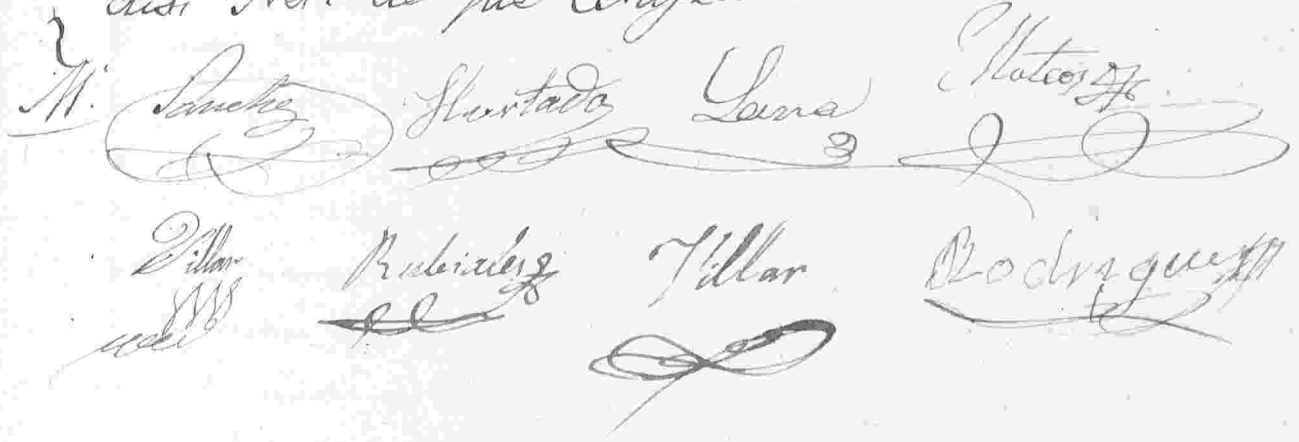 de que
M. Sanchez Hurtado Lerra Mateos
Villar Rubiales Villar Rodriguez